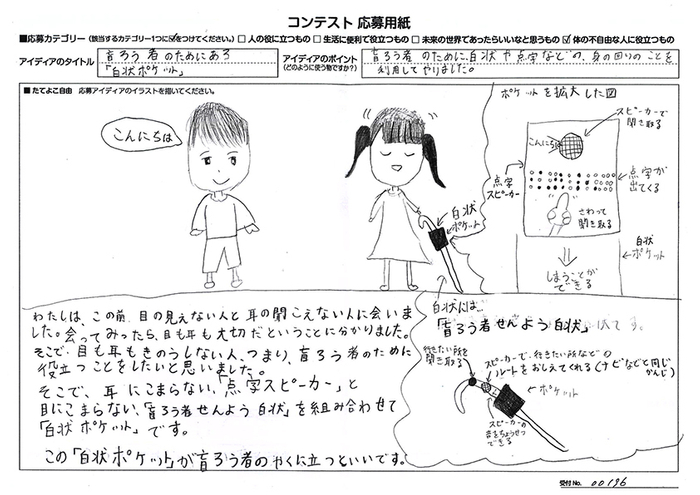 コンテスト 応募用紙
■応募カテゴリー（該当するカテゴリー1つに☑をつけてください。） □ 人の役に立つもの □ 生活に便利で役立つもの □ 未来の世界であったらいいなと思うもの ☑ 体の不自由な人に役立つもの
アイディアのタイトル
盲ろう者のためにある
「白状ポケット」
アイディアのポイント
（どのように使う物ですか？）
盲ろう者のために、白状や点字などの、身の回りのことを
利用してやりました。
■たてよこ自由 応募アイディアのイラストを描いてください。
こんにちは
白状
ポケット
ポケットを拡大した図
スピーカーで
聞き取る
こんにちは
点字
スピーカー
点字が
出てくる
さわって
聞き取る
白状
ポケット
しまうことが
できる
わたしは、この前、目の見えない人と耳の聞こえない人に会いま
した。会ってみったら、目も耳も大切だということに分かりました。
そこで、目も耳もきのうしない人、つまり、盲ろう者のために
役立つことをしたいと思いました。
そこで、耳にこまらない、「点字スピーカー」と
目にこまらない、「盲ろう者せんよう白状」を組み合わせて
「白状ポケット」です。
この「白状ポケット」が盲ろう者のやくに立つといいです。
白状には、
「盲ろう者せんよう白状」
です。
行きたい所を
聞き取る
スピーカーで、行きたい所などの
ルートをおしえてくれる（ナビなどと同じ
かんじ）
ポケット
スピーカーの
音をちょうせつ
できる
受付No. 00196